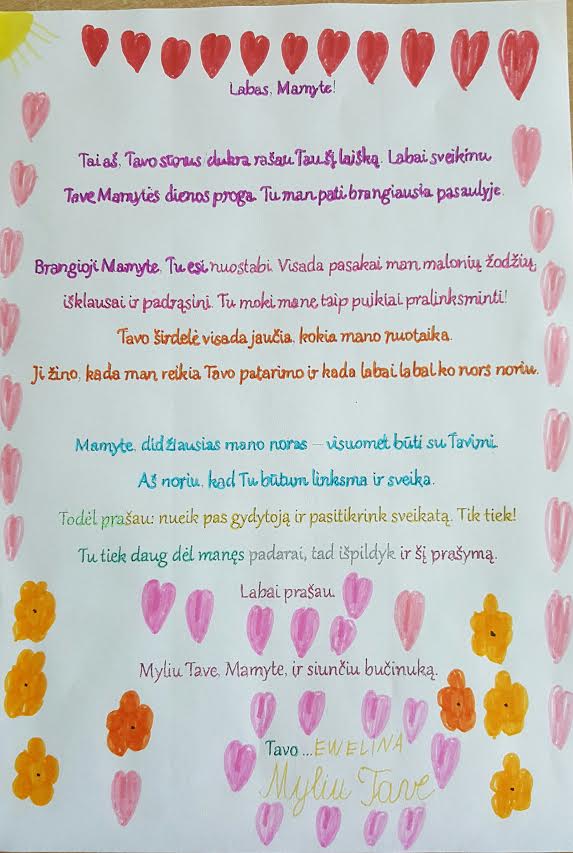 Labas, Mamyte!
Tai aš, Tavo dukra rašau Tau šį laišką. Labai sveikinu
Tave Mamytės dienos proga. Tu man pati brangiausia pasaulyje.
Brangioji Mamyte, Tu esi nuostabi. Visada pasakai man malonių žodžių,
išklausai ir padrąsini. Tu moki mane taip puikiai pralinksminti!
Tavo širdelė visada jaučia, kokia mano nuotaika.
Ji žino, kada man reikia Tavo patarimo ir kada labai labai ko nors noriu.
Mamyte, didžiausias mano noras – visuomet būti su Tavimi.
Aš noriu, kad Tu būtum linksma ir sveika.
Todėl prašau: nueik pas gydytoją ir pasitikrink sveikatą. Tik tiek!
Tu tiek daug dėl manęs padarai, tad išpildyk ir šį prašymą.
Labai prašau.
Myliu Tave, Mamyte, ir siunčiu bučinuką.
Tavo ...EWELINA
Myliu Tave